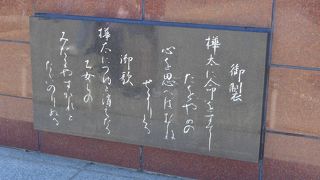 御製
樺太に命をすてし
たをやめの
心を思へばむね
せまりくる
御歌
樺太につゆと消えたる
乙女らの
みたまやすかれと
たゞいのりぬる